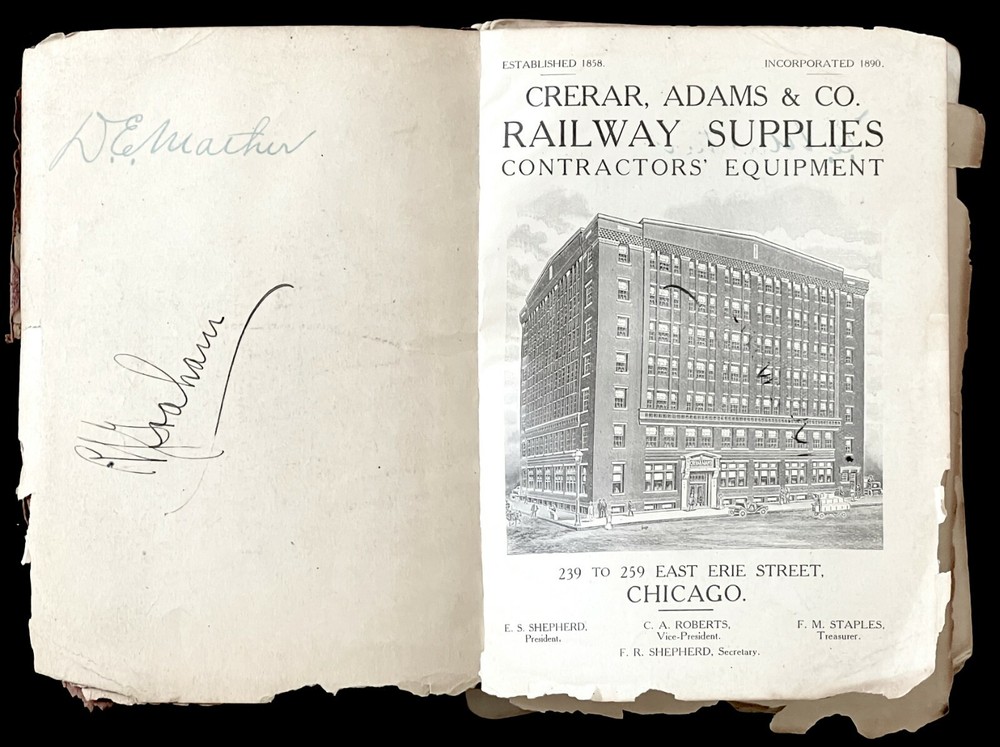 D. E. Mather
ESTABLISHED 1858.
INCORPORATED 1890.
CRERAR, ADAMS & CO.
RAILWAY SUPPLIES
CONTRACTORS' EQUIPMENT
239 TO 259 EAST ERIE STREET,
CHICAGO.
E. S. SHEPHERD,
President.
C. A. ROBERTS,
Vice-President.
F. M. STAPLES,
Treasurer.
F. R. SHEPHERD, Secretary.